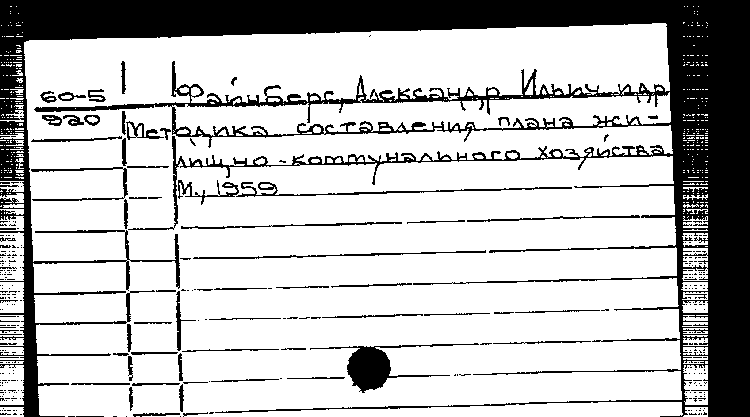 60-5
920
Файнберг, Александр Ильич и др
Методика составления плана жи-
лищно-коммунального хозяйства
М., 1959